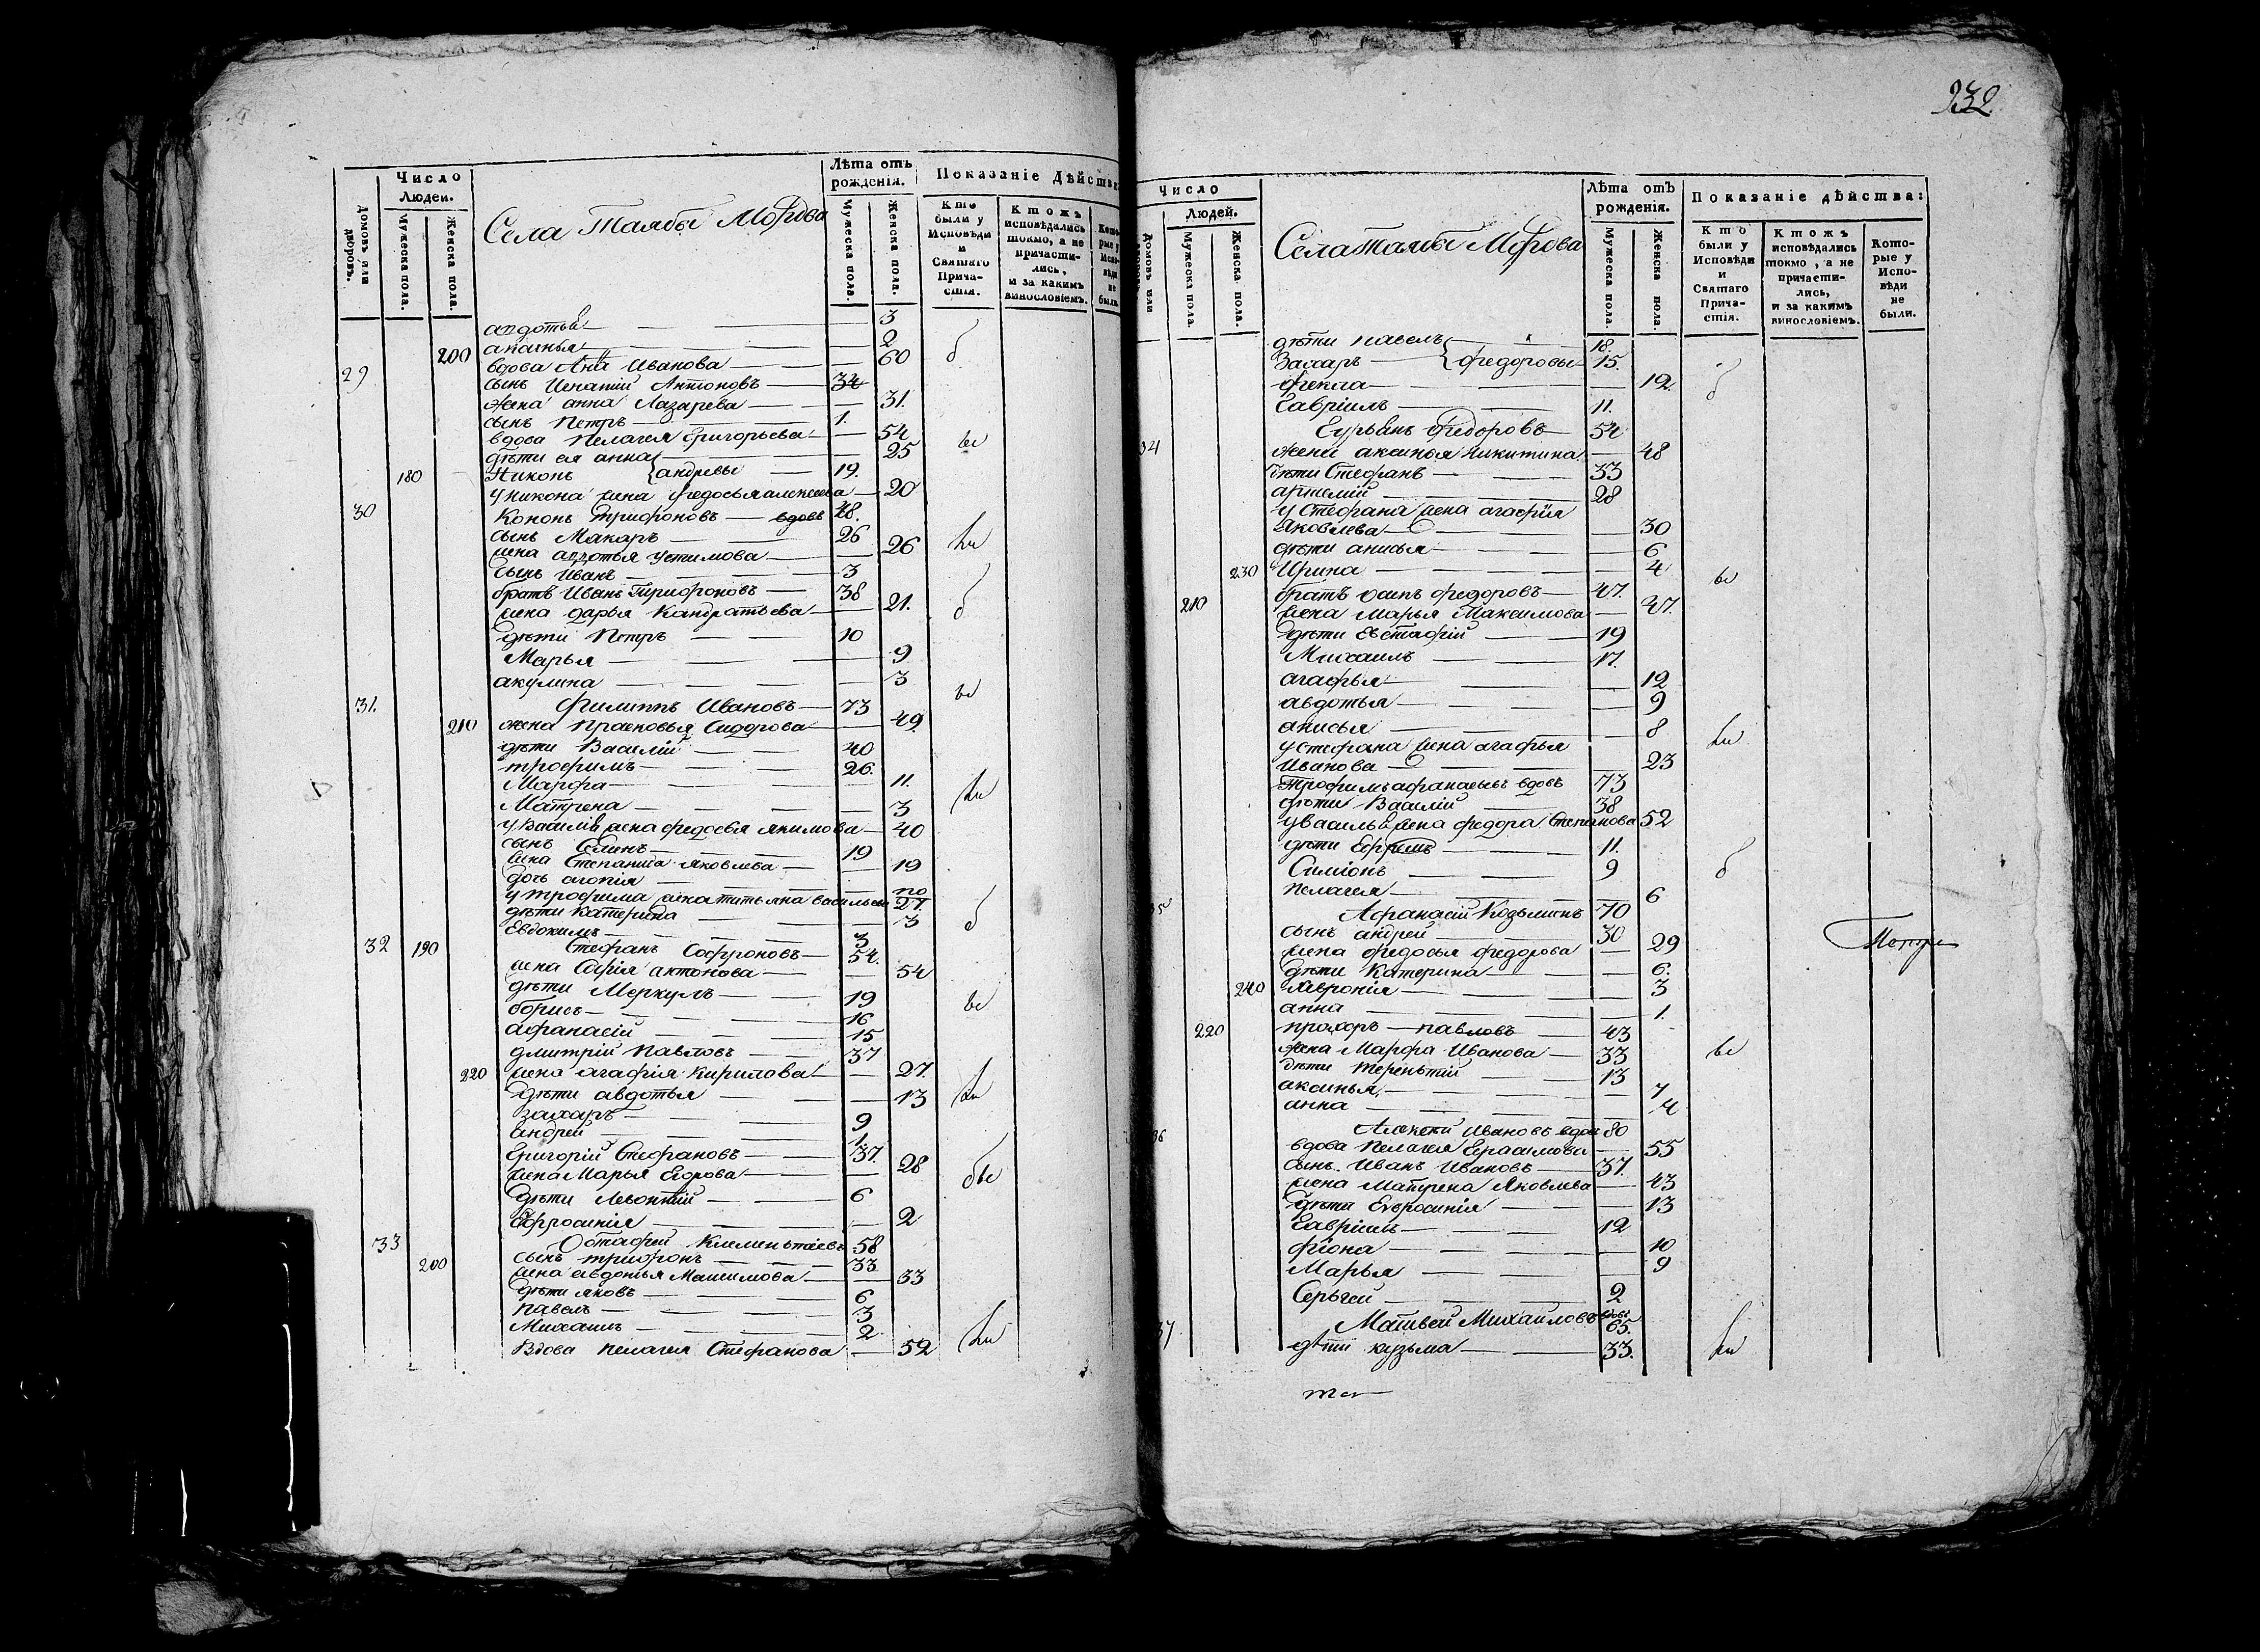 Число Людей.
Домовъ или дворовъ.
Мужеска пола.
Женска пола.
Села Тамбы Мордва
Лѣта отъ рожденія.
Мужеска пола.
Женска пола.
Показаніе Дѣйства
Кто были у Исповѣди и Святаго Прича-стія.
Ктожъ исповѣдались токмо, а не причасти-лись, и за какимъ винословіемъ.
авдотья — 3
200 апанья — 2
вдова Анна Иванова — 60 б
29 сынъ Игнатій Антоновъ — 34
жена анна Лазарева — 31.
сынъ Петръ — 1.
вдова Пелагея Григорьева — 54
дѣти ея анна — 25
180 Никонъ андревы — 19.
у никона жена федосья алексеева — 20
30 Кононъ трифоновъ — вдовъ 48.
сынъ Макаръ — 26
жена авдотья устимова — 26
сынъ Иванъ — 3
братъ Иванъ Трифоновъ — 38
жена дарья Кандратьева — 21. б
дѣти Петръ — 10
Марья — 9
акулина — 3
31. Филиппъ Ивановъ — 73
210 жена Прасковья Сидорова — 49.
дѣти Василій — 40
трофимъ — 26.
Марфа — 11.
Матрена — 3
у Василья жена федосья якимова — 40
сынъ — 19
жена Степанида Яковлева — 19
дочь
у трофима жена татьяна васильева 27.
дѣти катерина — 3
Евдокимъ — 3
32 190 Стефанъ Софроновъ — 54.
жена Софія антонова — 54
дѣти Меркулъ — 19
борисъ — 16
афанасій — 15
дмитрій Павловъ — 37
220 жена агафія Кирилова — 27.
дѣти авдотья — 13
захаръ — 9
андрей — 1
Григорій Стефановъ — 37.
жена Марья Егорова — 28
дѣти Левонтій — 6
Ефросинія — 2
33 Остафей Клементьевъ 58
200 сынъ трифонъ — 33
жена авдотья Максимова — 33
дѣти яковъ — 6
павелъ — 3
Михаилъ — 2
Вдова Пелагея Стефанова — 52
232
Число Людей.
Мужеска пола.
Женска пола.
Села тамбы Мордва
Лѣта отъ рожденія.
Мужеска пола.
Женска пола.
Показаніе дѣйства:
Кто были у Исповѣди и Святаго Прича-стія.
Ктожъ исповѣдались токмо, а не причасти-лись, и за какимъ винословіемъ.
Кото-рые у Испо-вѣди не были.
дѣти павелъ — 18.
Захаръ — федоровы 15.
фекла — 12. б
Гавріилъ — 11.
Гурьянъ Федоровъ — 54
34 жена аксинья Никитина — 48
дѣти Стефанъ — 33
артемій — 28
у Стефана жена агафія
Яковлева — 30
дѣти анисья — 6
230 Ирина — 4
210 братъ осипъ федоровъ — 47.
жена Марья Максимова — 47.
дѣти Евстафій — 19
Михаилъ — 17.
агафья — 12
авдотья — 9
анисья — 8
у стефана жена агафья
Иванова — 23
Трофимъ афанасьевъ вдовъ 73
дѣти Василій — 38
у василья жена федора Степанова 52
дѣти Ефремъ — 11.
Симіонъ — 9 б
Пелагея — 6
35 Афанасій Козьминъ 70
сынъ андрей — 30
жена федосья федорова — 29
дѣти Катерина — 6.
240 — 3
анна — 1.
220 прохоръ — павловъ — 43
жена Марфа Иванова — 33
дѣти терентій — 13
аксинья — 7
анна — 4
36 Алексей Ивановъ вдовъ 80
вдова Пелагея Герасимова — 55
сынъ Иванъ Ивановъ — 37.
жена Матрена Яковлева — 43
дѣти Евросинія — 13
Гавріилъ — 12
фіона — 10
Марья — 9
Сергей — 2
37 Матвей Михаиловъ вдовъ 65.
дѣти кузьма — 33.